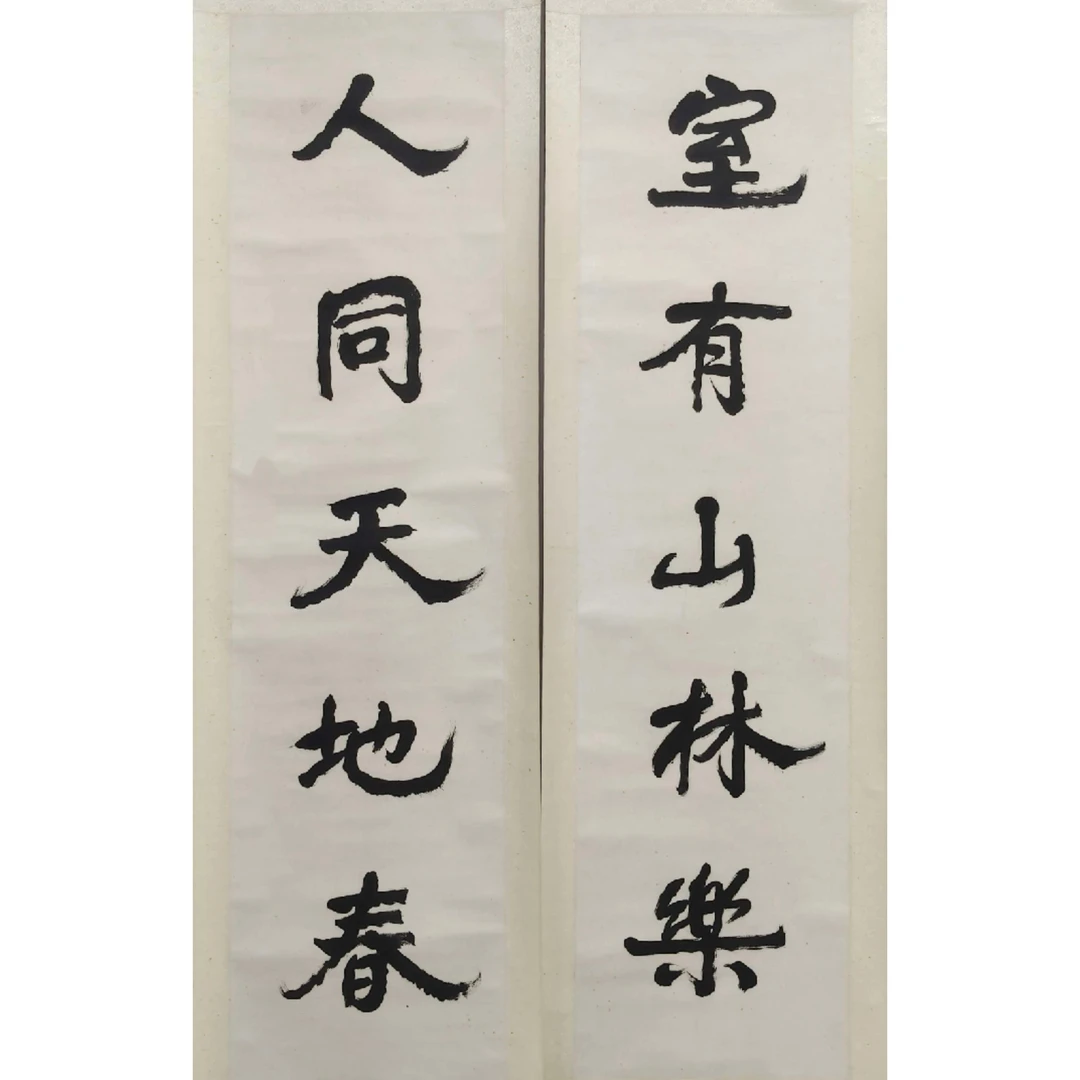 室有山林樂
人同天地春